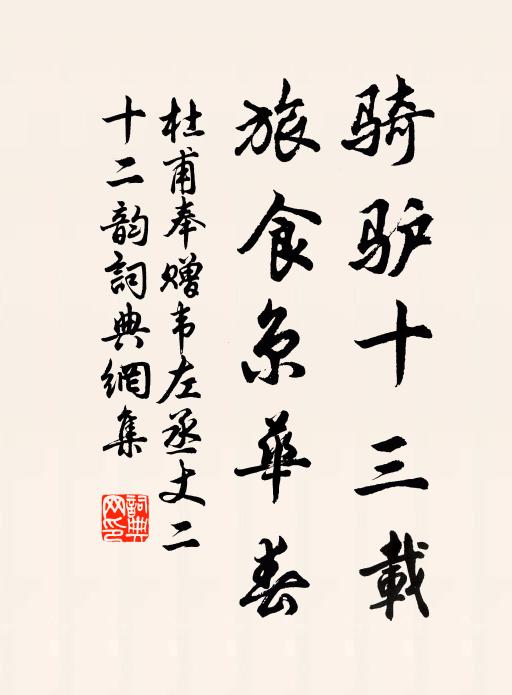 骑驴十三载
旅食京华春
杜甫奉赠韦左丞丈二
十二韵詞典網集
詞典網印